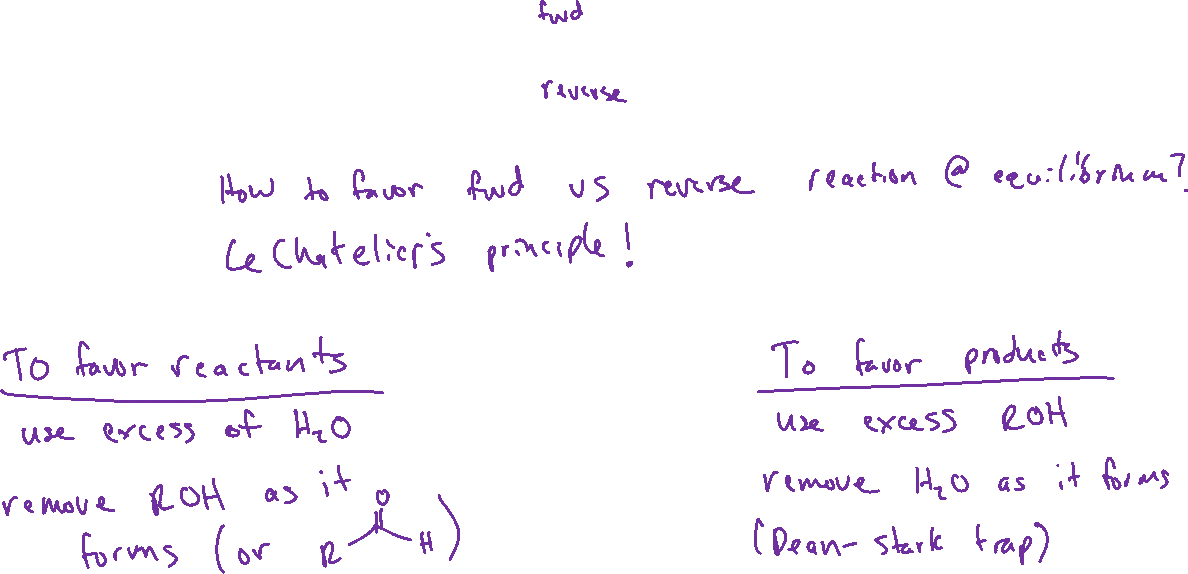 fwd
reverse
How to favor fwd vs reverse reaction @ equilibrium?
Le Chatelier's principle!
To favor reactants
use excess of H₂O
remove ROH as it
forms (or R O H)
To favor products
use excess ROH
remove H₂O as it forms
(Dean-stark trap)